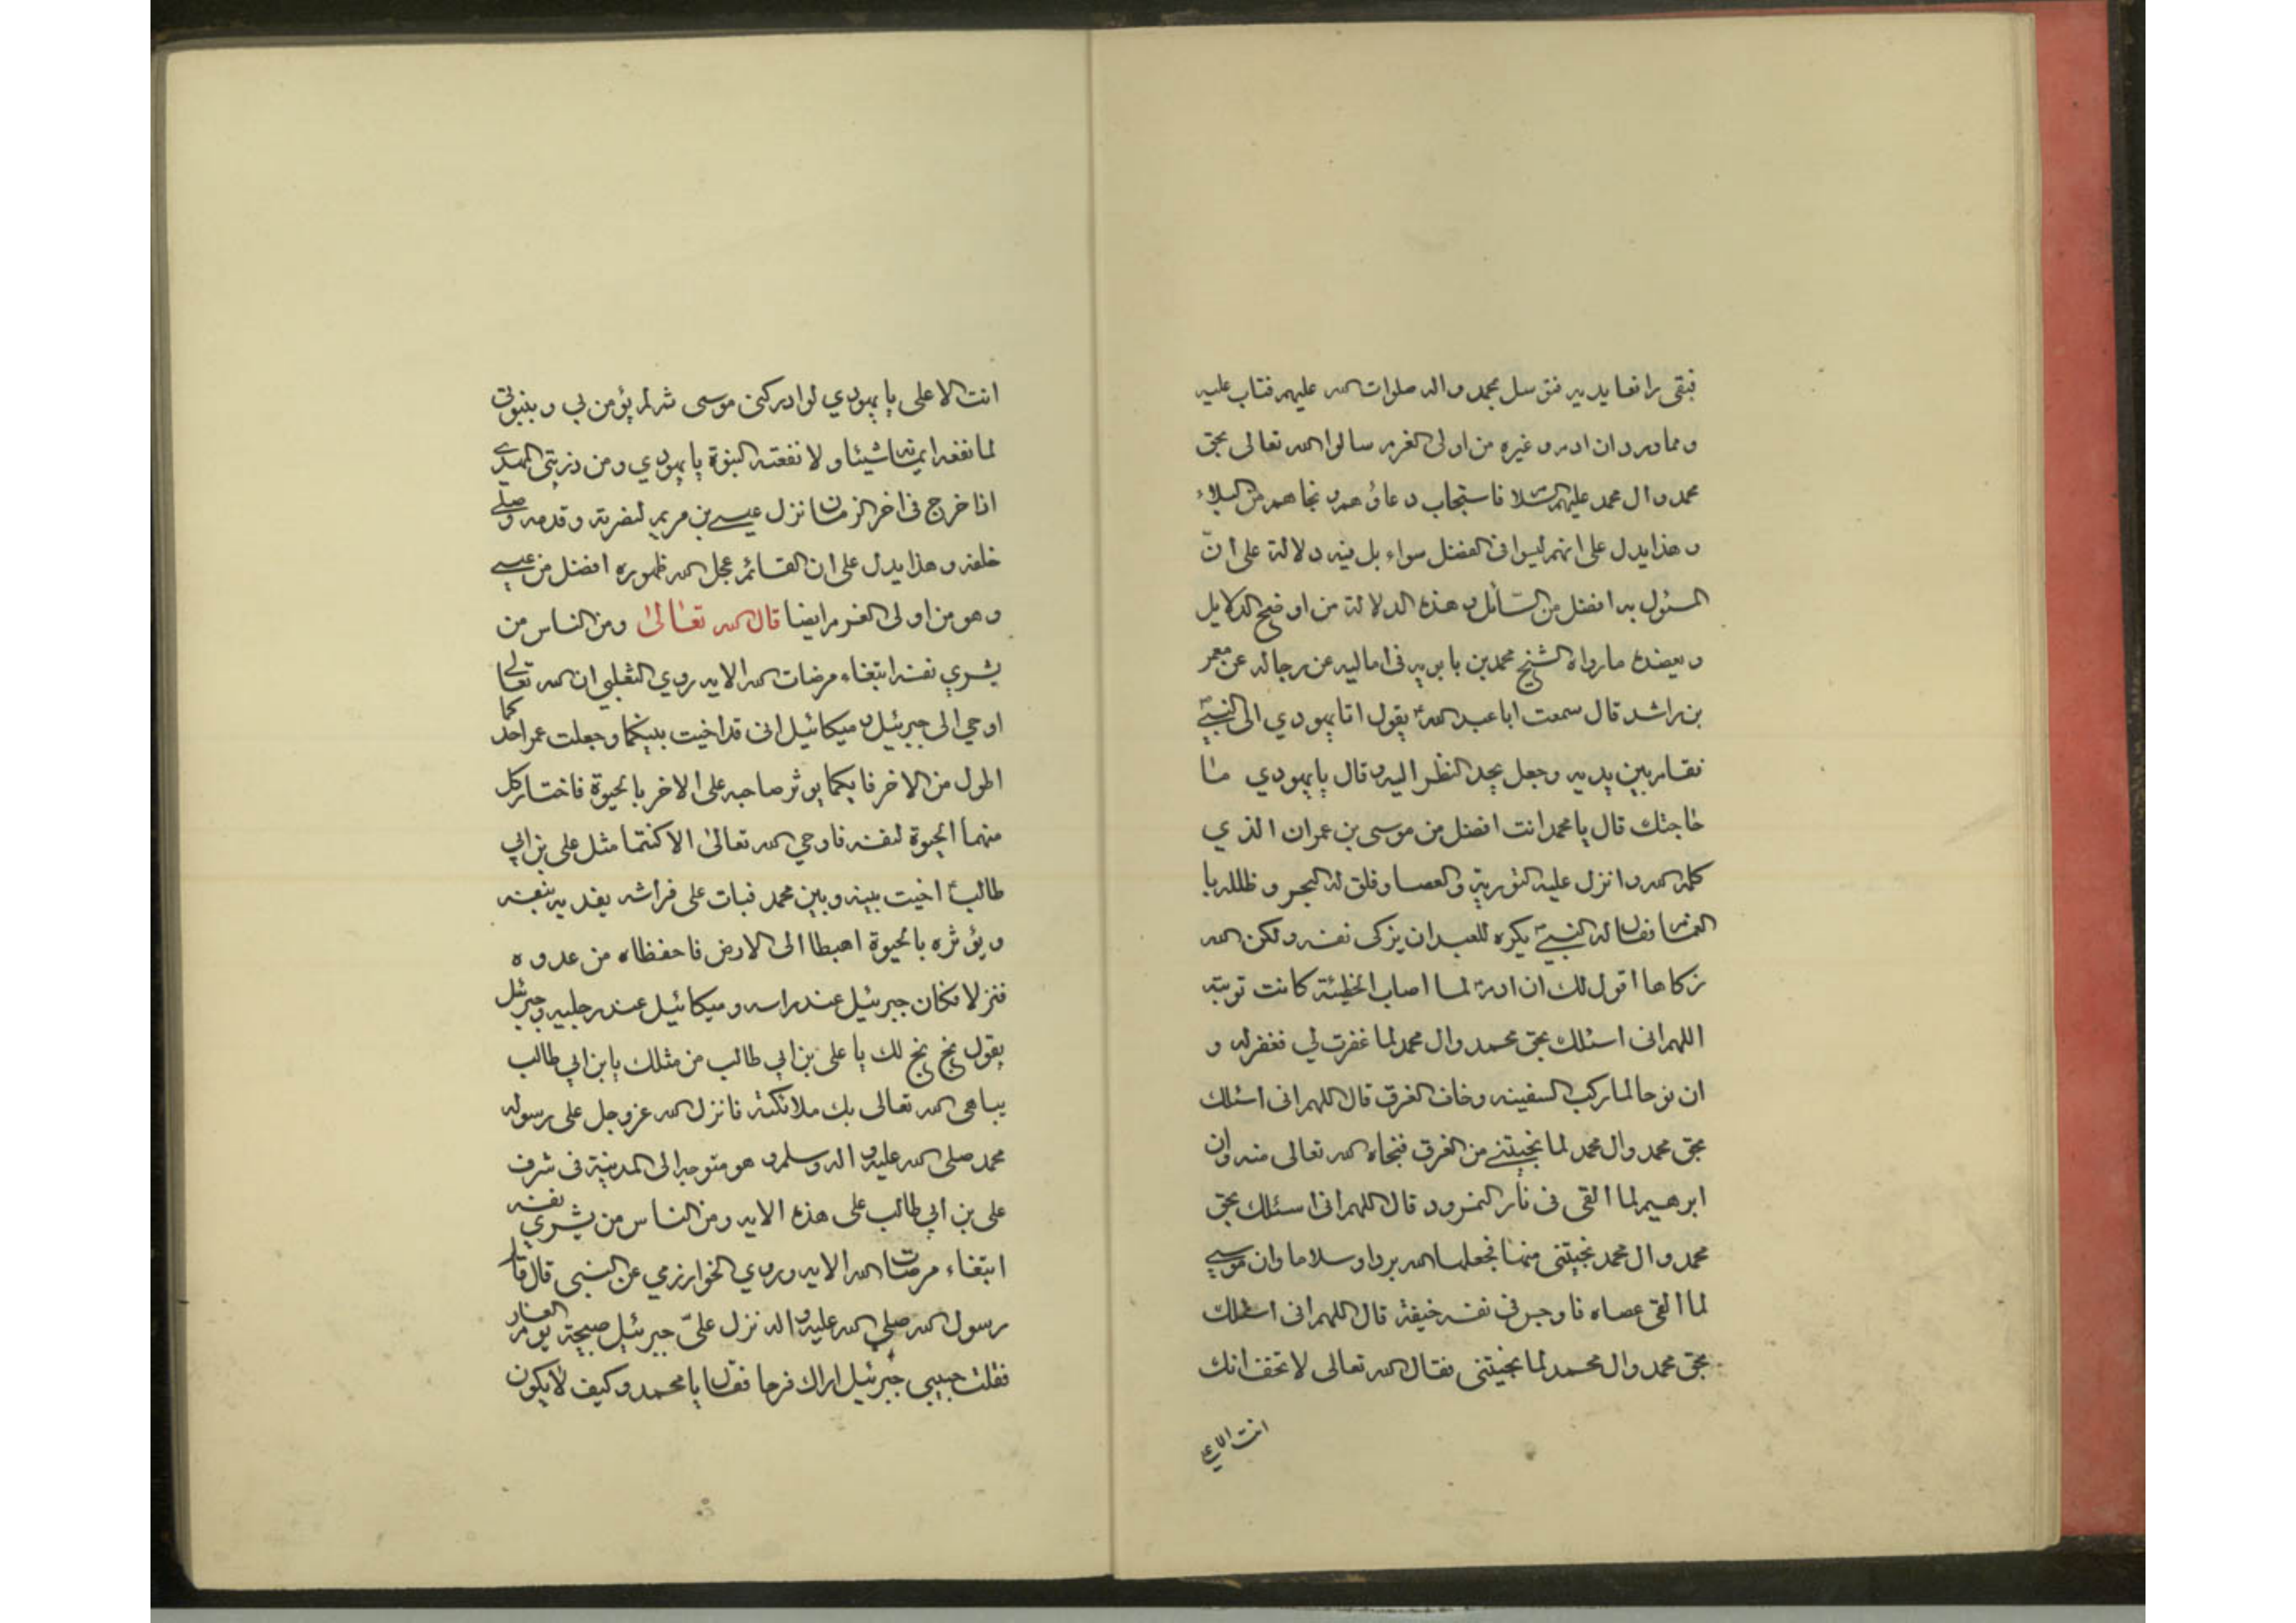 فبقى رافعا يديه فتوسل بمحمد واله صلوات الله عليهم فتاب عليه
ومما ورد ان ادم وغيره من اولى العزم سالوا الله تعالى بحق
محمد وال محمد عليهم السلام فاستجاب دعاؤهم ونجاهم من البلاء
وهذا يدل على انهم ليسوا فى الفضل سواء بل فيه دلالة على انّ
المسئول به افضل من السّائل وهذه الدلالة من اوضح الدلايل
ويعضده مارواه الشيخ محمد بن بابويه فى اماليه عن رجاله عن معمر
بن راشد قال سمعت ابا عبد الله ع يقول اتا يهودي الى النبي ص
فقام بين يديه وجعل يحد النظر اليه وقال يا يهودي ما
حاجتك قال يا محمد انت افضل من موسى بن عمران الذي
كلمه الله وانزل عليه التورية والعصا وفلق له البحر وظلله با
لغمام فقال له النبي ص يكره للعبد ان يزكى نفسه ولكن الله
زكاها اقول لك ان ادم لما اصاب الخطيئة كانت توبته
اللهم انى اسئلك بحق محمد وال محمد لما غفرت لي فغفر له و
ان نوحا لما ركب السفينه وخاف الغرق قال اللهم انى اسئلك
بحق محمد وال محمد لما نجيتنى من الغرق فنجاه الله تعالى منه وان
ابرهيم لما القى فى نار النمرود قال اللهم انى اسئلك بحق
محمد وال محمد نجيتنى منها فجعلها الله بردا وسلاما وان موسى
لما القى عصاه فاوجس فى نفسه خيفة قال اللهم انى اسئلك
بحق محمد وال محمد لما نجيتنى فقال الله تعالى لا تخف انك
انت الاعلى
انت الاعلى يا يهودي لو ادركنى موسى ثم لم يؤمن بي وبنبوتى
لما نفعه ايمانه شيئا ولا نفعته النبوة يا يهودي ومن ذريتى المهدى
اذا خرج فى اخر الزمان نزل عيسى بن مريم لنصرته وقدمه وصلى
خلفه وهذا يدل على ان القائم عجل الله ظهوره افضل من عيسى
وهو من اولى العزم ايضا قال الله تعالى ومن الناس من
يشري نفسه ابتغاء مرضات الله الايه روي الثعلبي ان الله تعالى
اوحي الى جبرئيل وميكائيل انى قد اخيت بينكما وجعلت عمر احدكما
اطول من الاخر فايكما يوثر صاحبه على الاخر بالحيوة فاختار كل
منهما الحيوة لنفسه فاوحي الله تعالى الا كنتما مثل على بن ابي
طالب ع اخيت بينه وبين محمد فبات على فراشه يفديه بنفسه
ويؤثره بالحيوة اهبطا الى الارض فاحفظاه من عدوه
فنزلا فكان جبرئيل عند راسه وميكائيل عند رجليه وجبرئيل
يقول بخ بخ لك يا على بن ابي طالب من مثلك يا بن ابي طالب
يباهى الله تعالى بك ملائكته فانزل الله عزوجل على رسوله
محمد صلى الله عليه واله وسلم وهو متوجه الى المدينة فى شرف
على بن ابي طالب على هذه الايه ومن الناس من يشري نفسه
ابتغاء مرضات الله الايه وروي الخوارزمي عن النبى قال قال
رسول الله صلي الله عليه واله نزل علىّ جبرئيل صبيحة يوم الغار
فقلت حبيبي جبرئيل اراك فرحا فقال يا محمد وكيف لا يكون